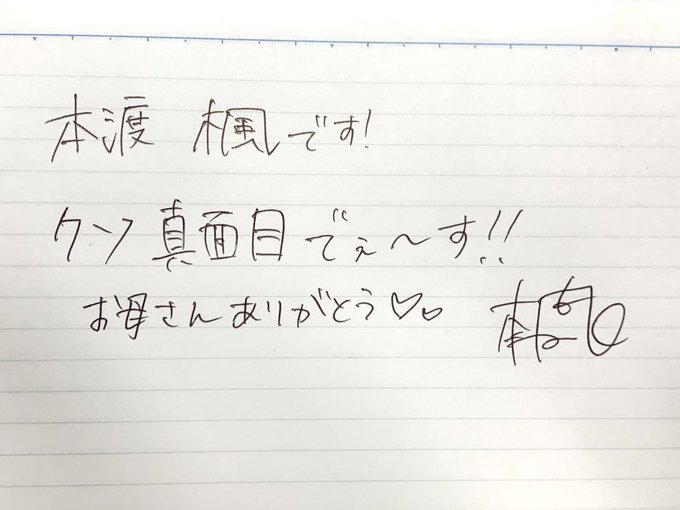 本渡 楓です!
クソ真面目でぇ〜す!!
お母さんありがとう♡♡